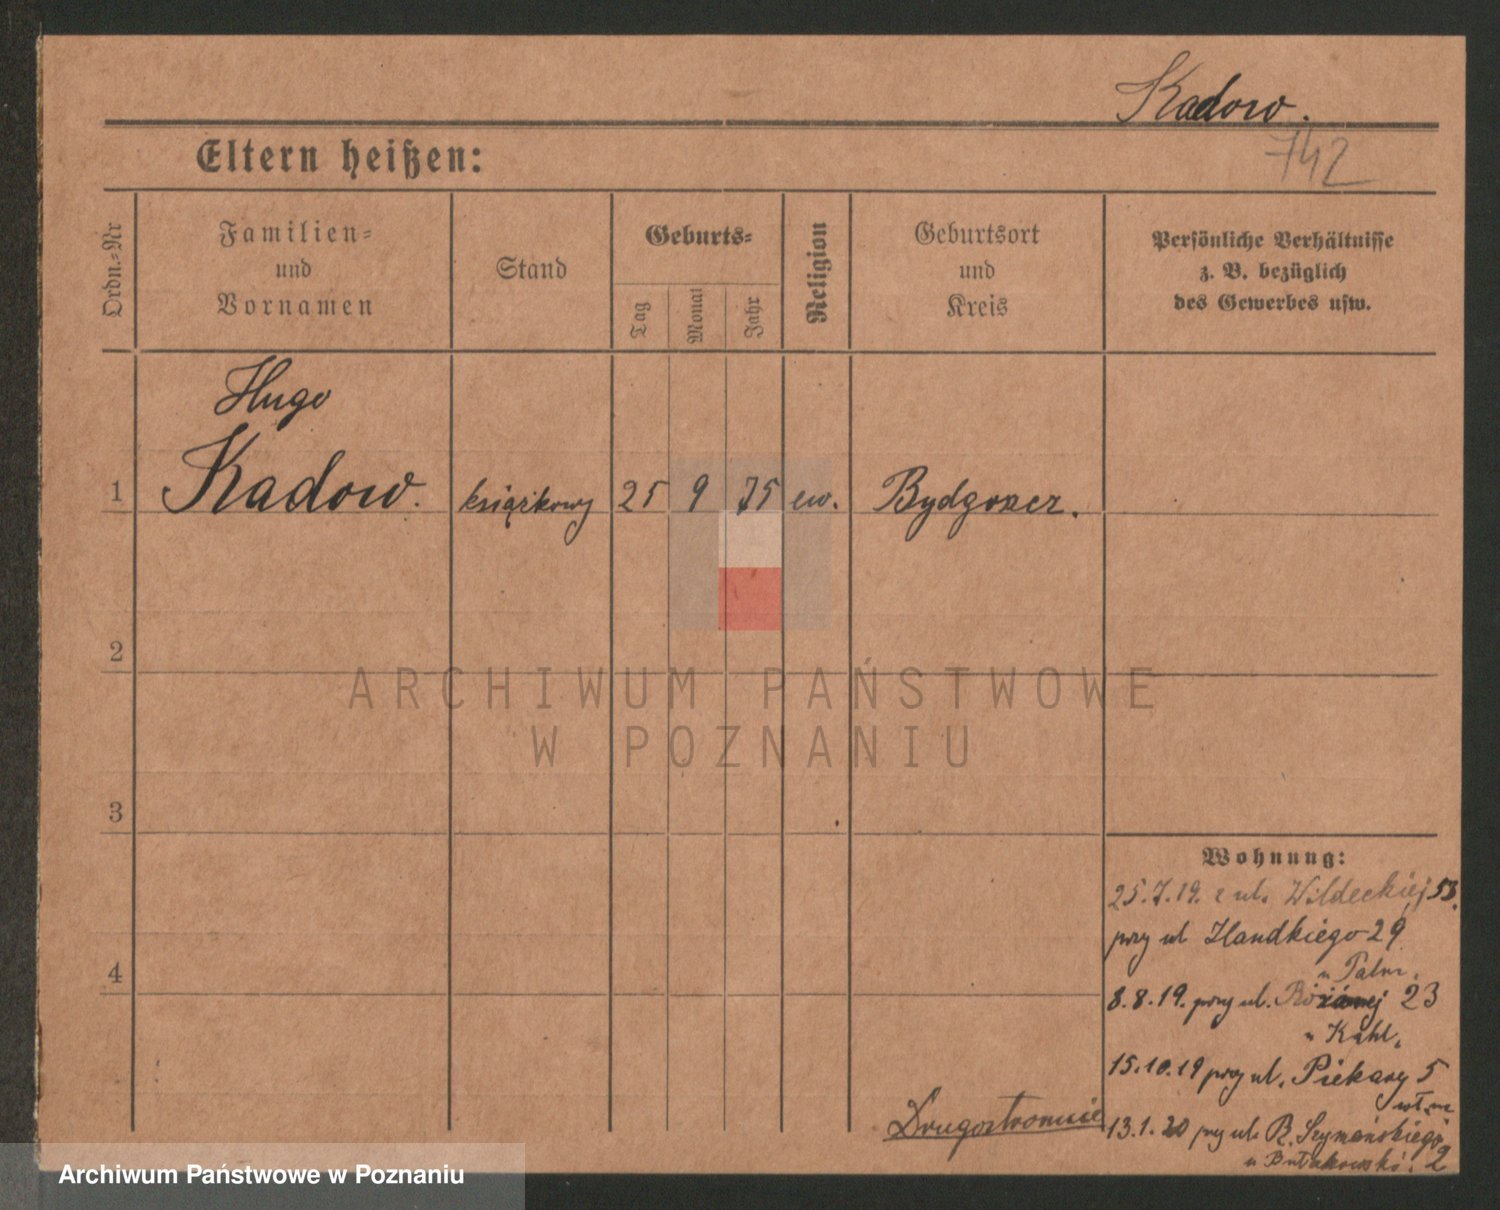 Kadow.
742
Eltern heißen:
Ordn.-Nr
Familien-
und
Vornamen
Stand
Geburts-
Tag
Monat
Jahr
Religion
Geburtsort
und
Kreis
Persönliche Verhältnisse
z. B. bezüglich
des Gewerbes usw.
1
Hugo
Kadow.
książkowy
25
9
75
ew.
Bydgoszcz.
2
3
4
ARCHIWUM PAŃSTWOWE
W POZNANIU
Wohnung:
25.7.19. z ul. Wildeckiej 53.
przy ul 29
u Palm.
8.8.19. przy ul. Różanej 23
u Kahl.
15.10.19 przy ul. Piekary 5
wł. m.
13.1.20 przy ul. R. Szymańskiego
u 2
Drugostronnie
Archiwum Państwowe w Poznaniu